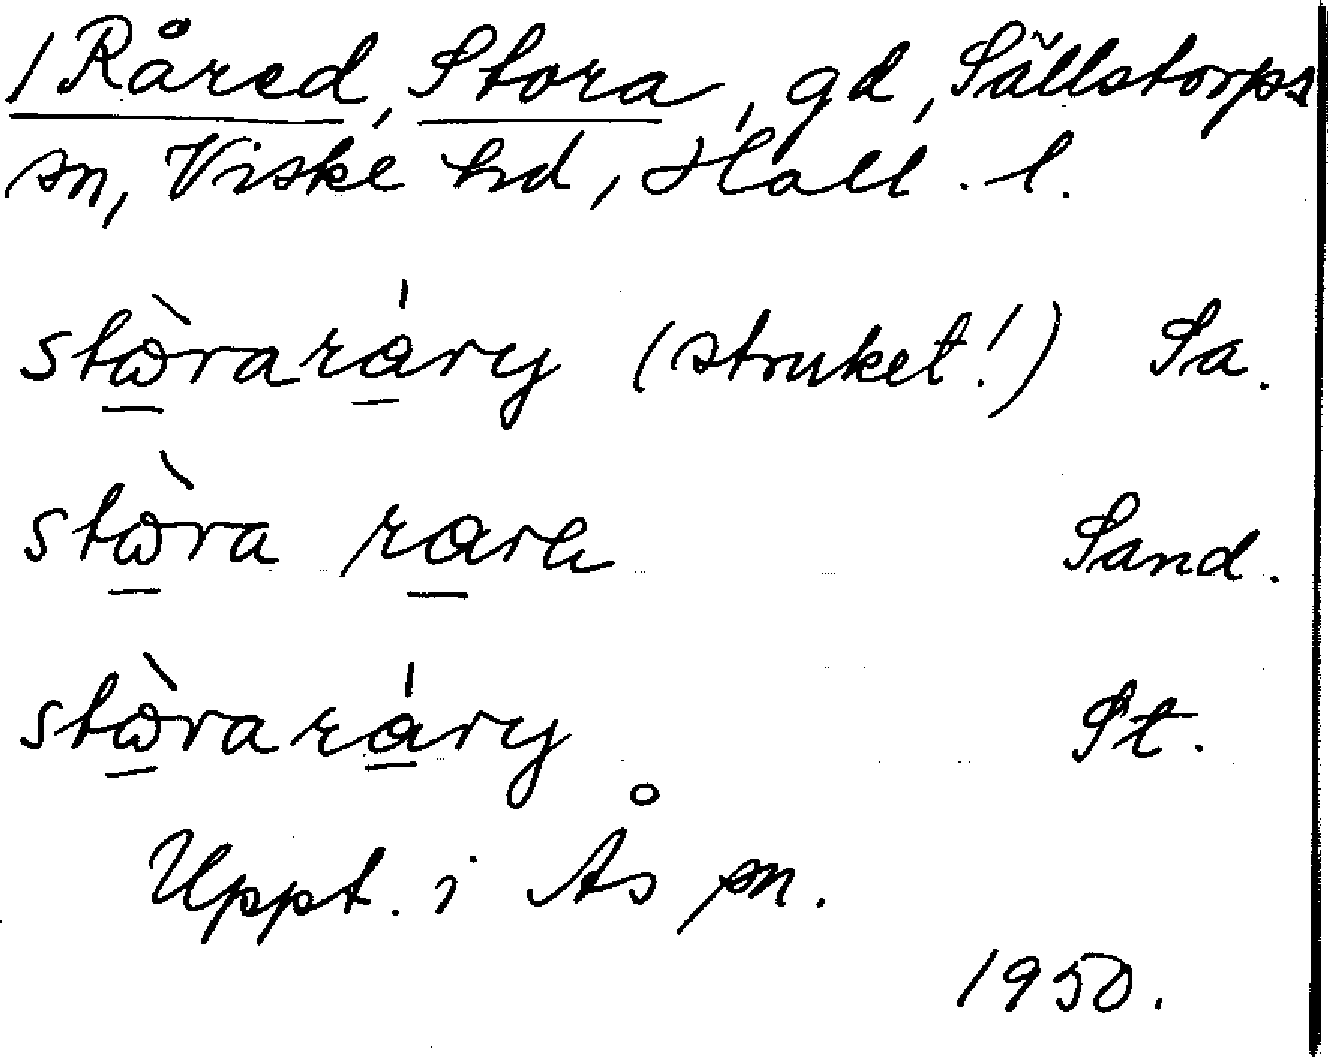 1 Råred, Stora, gd, Sällstorps
sn, Viske hd, Hall. l.
stὼraráry (struket!) Sa.
stὼra rarɐ Sand.
stὼraráry St.
Uppt. i Ås sn.
1950.